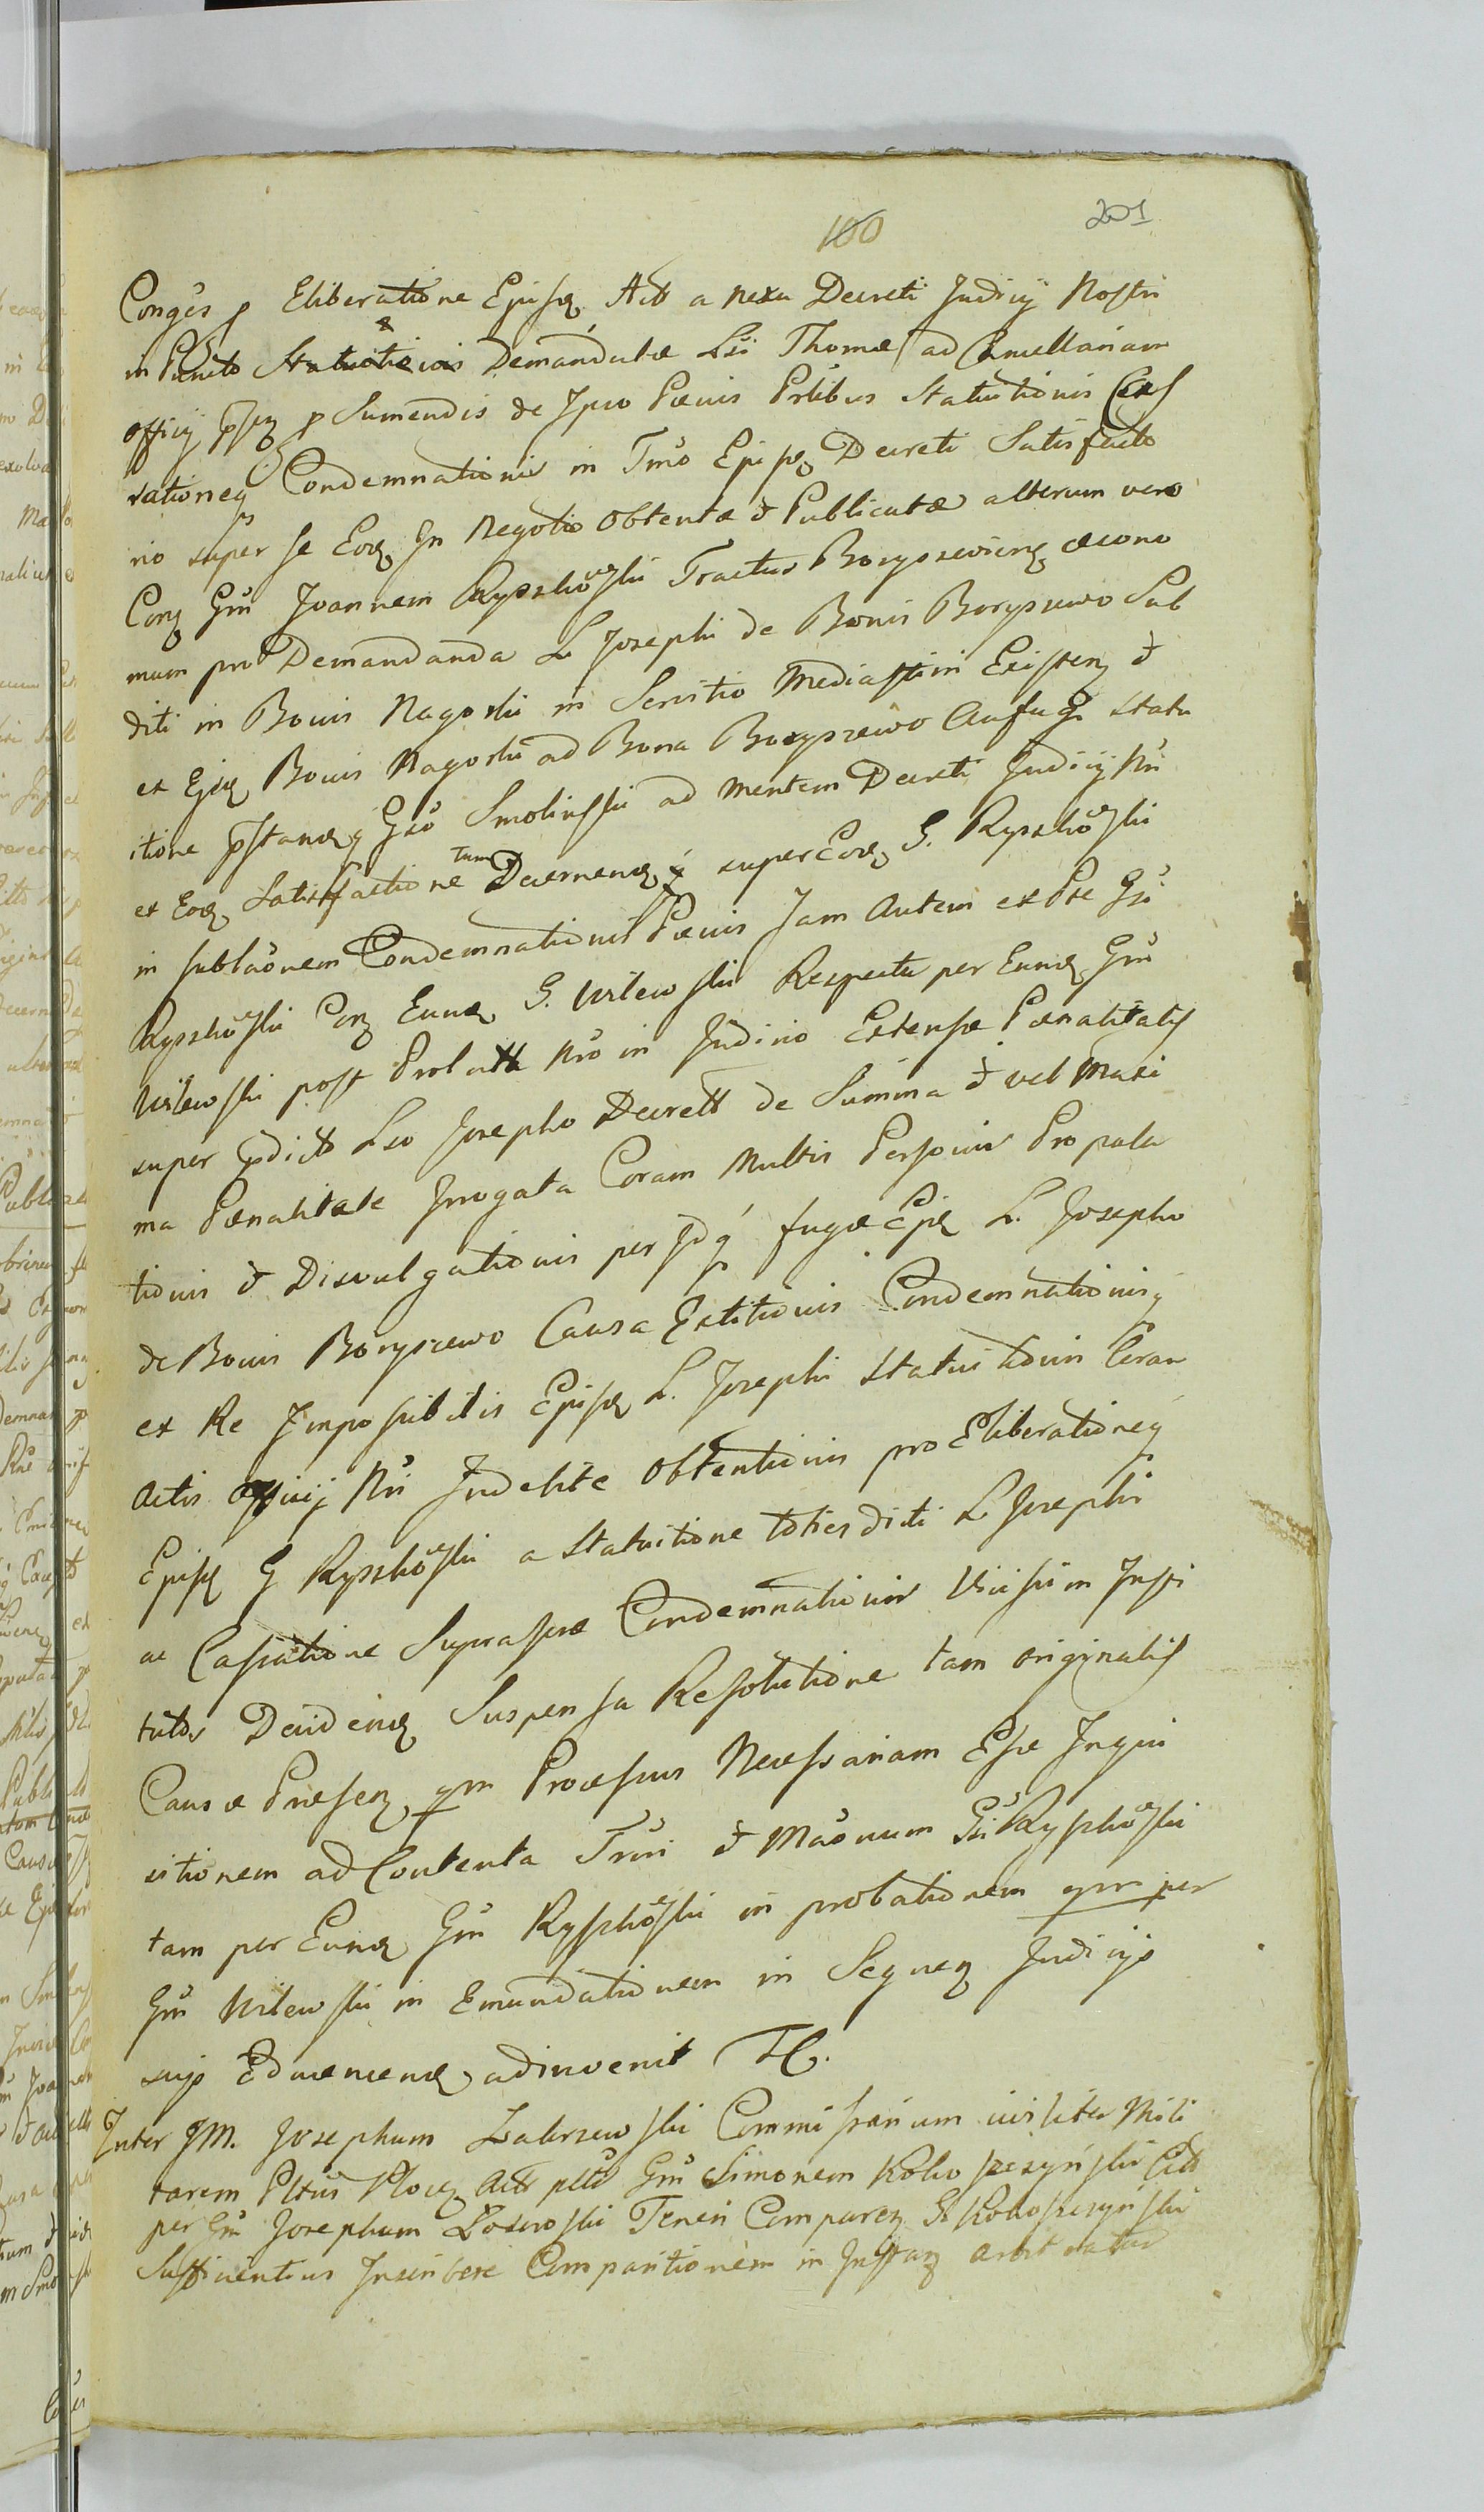 100 201
Congẽs p Eliberatione Ejusq Act a nexu Decreti Judicij Nostri
in Puncto Statuitionis Demandatæ Lsi Thomæ ad Cancellariam
officij p Sumendis de Ipso Pœnis Prlibus Statuitionis Cexs
rationeq Condemnationis in Tmo Ejusq Decreti Satisfacto
rio super se Eoq In Negotio Obtentæ & Publicatæ alterum vero
Conq Gm Joannem Rypskowski Tractus Boryszewienq œcono
mum pro Demandanda L Josephi de Bonis Boryszewo Sub
diti in Bonis Nagorki in Servitio Mediastini Existenq &
ex Ejsq Bonis Nagorki ad Bona Boryszewo Aufug statu
itione pstanq Gso Smolinski ad mentem Decreti Judicij Nri
ex Eoq Satisfactione Tum Decernenq super Eoq G. Rypskowski
in sublaonem Condemnationis Pœnis Jam Autem ex Pte Gsi
Rypskowski Conq Eunq G. Wilewski Respectu per Eunq Gm
Wilewski post Prolatt Nro in Judicio Extensæ Pœnalitatis
super pdicto Lso Josepho Decrett de Summa & vel Maxi
ma Pœnalitate Irrogata Coram Multis Personis Propala
tionis & Divulgationis per Idq fugæ Ejsq L. Josepho
de Bonis Boryszewo Causa Extitionis Condemnationisq
ex Re Impossibilis Ejusq L. Josephi Statuitionis Coram
Actis Officij Nri Indebite Obtentionis pro Eliberationeq
Ejusq G Rypskowski a Statuitione toties dicti L Josephi
ac Cassatione Suprascræ Condemnationis Vicissim Insti
tutos Decidenq Suspensa Resolutione tam originalis
Causæ Præsenq qm Processus Necessariam Esse Inqui
sitionem ad Contenta Trmi & Maonum Gsi Rypskowski
tam per Eunq Gm Rypskowski in probationem qm per
Gm Wilewski in Emundationem in Sequenq Judicijs
suis Educenq adinvenit TC.
Inter GM. Josephum Zakrzewski Commissarium civiliter Mili
tarem Pltus Plocq Act pltis Gm Simonem Kolboszczynski Citt
per Gm Josephum Losowski Teneri Comparenq Gs Kolboszczynski
Sufficientius Inscribere Comparitionem in Instanq Arbitratur